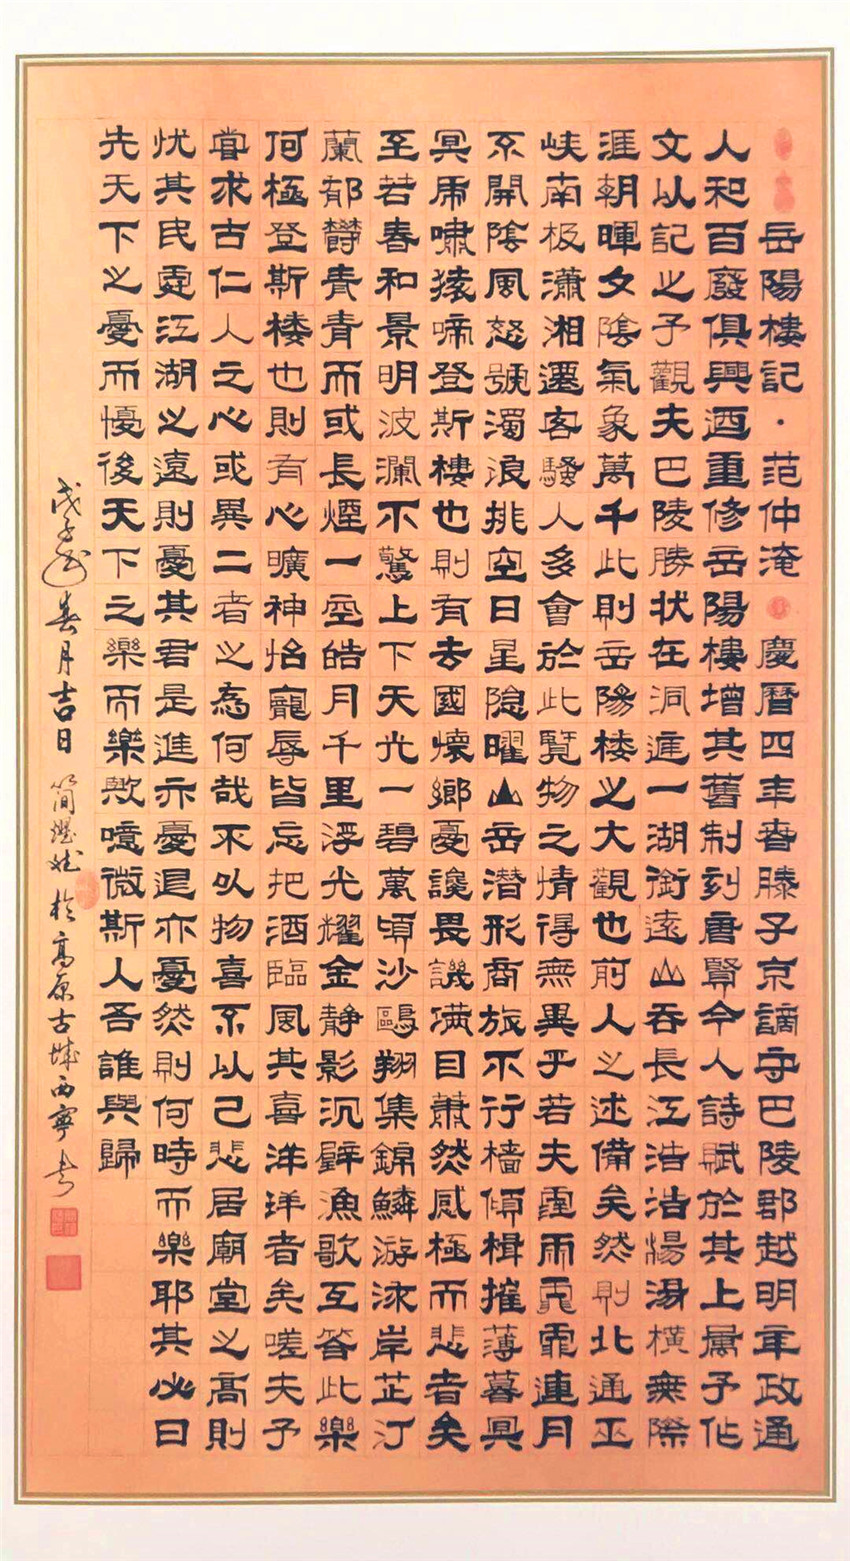 岳陽樓記·范仲淹 慶曆四年春滕子京謫守巴陵郡越明年政通
人和百廢俱興迺重修岳陽樓增其舊制刻唐賢今人詩賦於其上屬予作
文以記之予觀夫巴陵勝狀在洞庭一湖銜遠山吞長江浩浩湯湯橫無際
涯朝暉夕陰氣象萬千此則岳陽楼之大觀也前人之述備矣然則北通巫
峽南极瀟湘遷客騷人多會於此覽物之情得無異乎若夫霪雨霏霏連月
不開陰風怒號濁浪排空日星隐曜山岳潜形商旅不行檣傾楫摧薄暮冥
冥虎嘯猿啼登斯樓也則有去國懷鄉憂讒畏譏满目蕭然感極而悲者矣
至若春和景明波瀾不驚上下天光一碧萬頃沙鷗翔集錦鱗游泳岸芷汀
蘭郁鬱青青而或長煙一空皓月千里浮光耀金静影沉璧漁歌互答此樂
何極登斯楼也則有心曠神怡寵辱皆忘把酒臨風其喜洋洋者矣嗟夫予
嘗求古仁人之心或異二者之為何哉不以物喜不以己悲居廟堂之高則
忧其民處江湖之遠則憂其君是進亦憂退亦憂然則何時而樂耶其必曰
先天下之憂而懮後天下之樂而樂歟噫微斯人吾誰與歸
戊子年春月吉日 簡 於高原古城西寧书